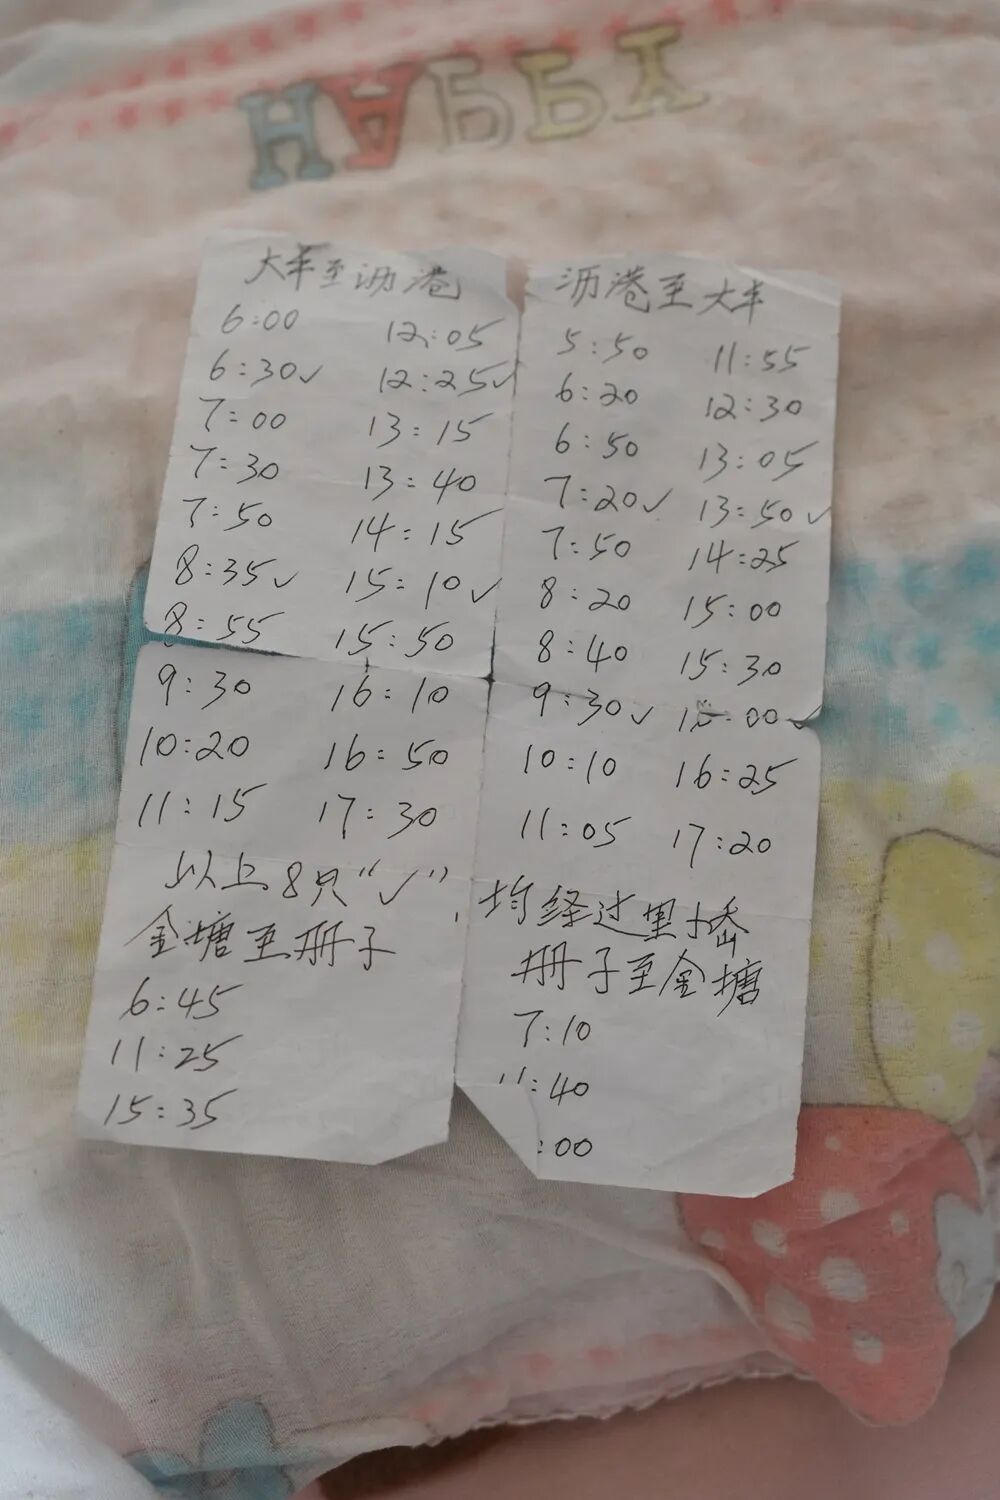 HAPPY
大丰至沥港
6:00 12:05
6:30✓ 12:25✓
7:00 13:15
7:30 13:40
7:50 14:15
8:35✓ 15:10✓
8:55 15:50
9:30 16:10
10:20 16:50
11:15 17:30
沥港至大丰
5:50 11:55
6:20 12:30
6:50 13:05
7:20✓ 13:50✓
7:50 14:25
8:20 15:00
8:40 15:30
9:30✓ 16:00✓
10:10 16:25
11:05 17:20
以上8只“✓”,均经过里小岙
金塘至册子
6:45
11:25
15:35
册子至金塘
7:10
11:40
:00